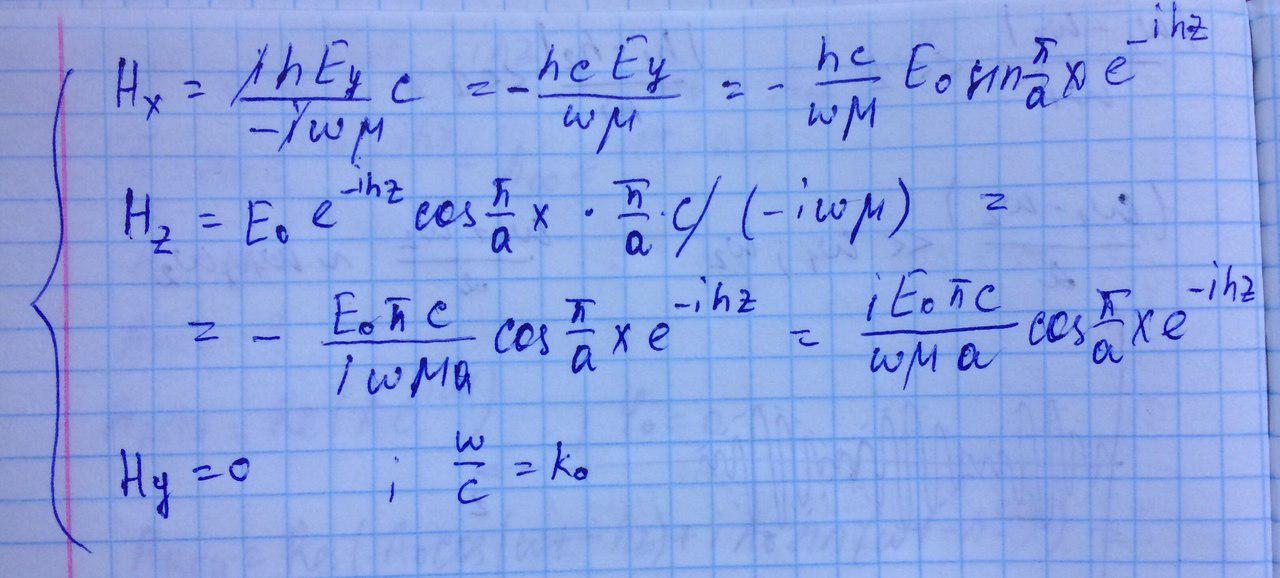 Hx = ihEy/(-iωμ) c = - hcEy/(ωμ) = - hc/(ωμ) E₀ sin π/a x e^(-ihz)
Hz = E₀ e^(-ihz) cos π/a x · π/a · c/(-iωμ) =
= - E₀πc/(iωμa) cos π/a x e^(-ihz) = iE₀πc/(ωμa) cos π/a x e^(-ihz)
Hy = 0 ; ω/c = k₀